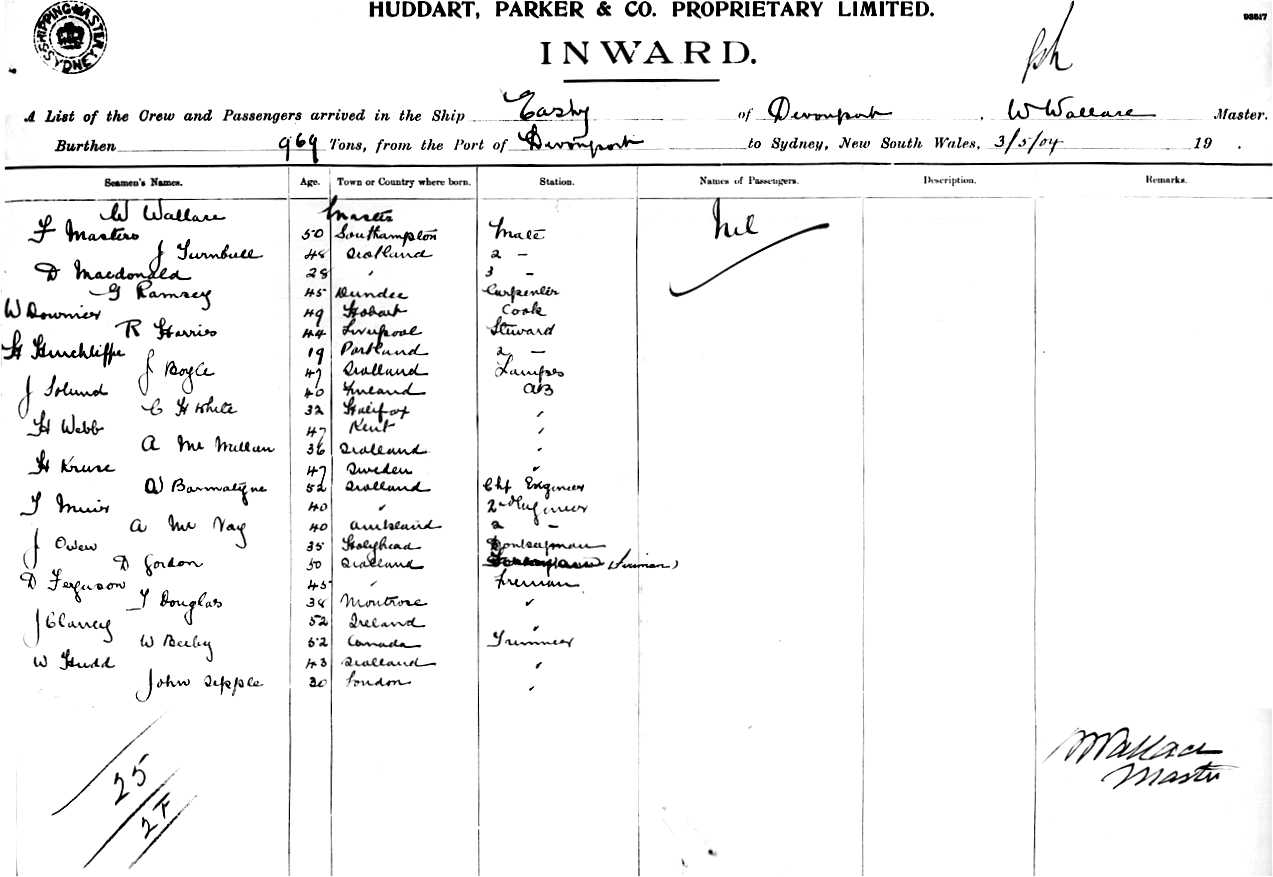 HUDDART, PARKER & CO. PROPRIETARY LIMITED.
93517
SHIPPING MASTER SYDNEY
INWARD.
A List of the Crew and Passengers arrived in the Ship Easby of Devonport, W Wallace Master.
Burthen 969 Tons, from the Port of Devonport to Sydney, New South Wales, 3/5/04 19 .
Seamen's Names. Age. Town or Country where born. Station. Names of Passengers. Description. Remarks.
W Wallace Master
Nil
F Masters 50 Southampton Mate
J Turnbull 48 Scotland 2 -
D Macdonald 28 " 3 -
G Ramsey 45 Dundee Carpenter
W Downier 49 Hobart Cook
R Harries 44 Liverpool Steward
H Hinchliffe 19 Portland 2 -
J Boyle 47 Scotland Lamps
J 40 Finland AB
C H White 32 Halifax "
H Webb 47 Kent "
A Mc Millan 36 Scotland "
H Kruse 47 Sweden "
52 Scotland Chf Engineer
T Muir 40 " 2nd Engineer
A Mc Vay 40 -
J Owen 35 Holyhead
D Gordon 50 Scotland (Fireman)
D Ferguson 45 " Fireman
T Douglas 38 Montrose "
J Clancy 52 Ireland "
W 52 Canada Trimmer
W Hudd 43 Scotland "
John Sipple 30 London "
W Wallace
Master
25
27